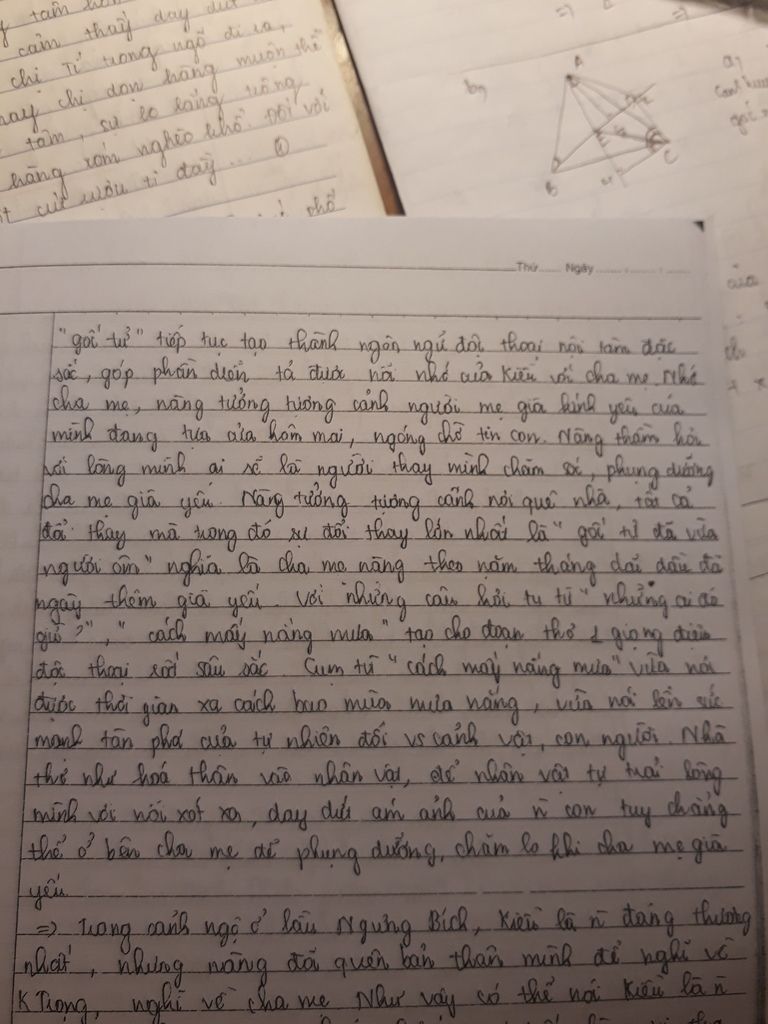 cảm thấy day dứt
chị Tí trong ngõ đi ra,
hay chị dọn hàng muộn thế
tâm, sự lo lắng
hàng xóm nghèo khổ. Đối với
cụ rượu ti đầy ... ①
phố
b,
A
B
C
a,
Thứ ...... Ngày ......
"gốc tử" tiếp tục tạo thành ngôn ngữ độc thoại nội tâm đặc
sắc, góp phần diễn tả được nỗi nhớ của Kiều với cha mẹ. Nhớ
cha mẹ, nàng tưởng tượng cảnh người mẹ già kính yêu của
mình đang tựa cửa hôm mai, ngóng chờ tin con. Nàng thầm hỏi
với lòng mình ai sẽ là người thay mình chăm sóc, phụng dưỡng
cha mẹ già yếu. Nàng tưởng tượng cảnh nơi quê nhà, tất cả
đổi thay mà trong đó sự đổi thay lớn nhất là "gốc tử đã vừa
người ôm" nghĩa là cha mẹ nàng theo năm tháng dãi dầu đã
ngày thêm già yếu. Với những câu hỏi tu từ "những ai đó
giờ?", "cách mấy nắng mưa" tạo cho đoạn thơ 1 giọng điệu
độc thoại rất sâu sắc. Cụm từ "cách mấy nắng mưa" vừa nói
được thời gian xa cách bao mùa mưa nắng, vừa nói lên sức
mạnh tàn phá của tự nhiên đối vs cảnh vật, con người. Nhà
thơ như hoá thân vào nhân vật, để nhân vật tự trải lòng
mình với nỗi xót xa, day dứt ám ảnh của n con tuy chẳng
thể ở bên cha mẹ để phụng dưỡng, chăm lo khi cha mẹ già
yếu.
=> Trong cảnh ngộ ở lầu Ngưng Bích, Kiều là n đáng thương
nhất, nhưng nàng đã quên bản thân mình để nghĩ về
K Trọng, nghĩ về cha mẹ. Như vậy có thể nói Kiều là n